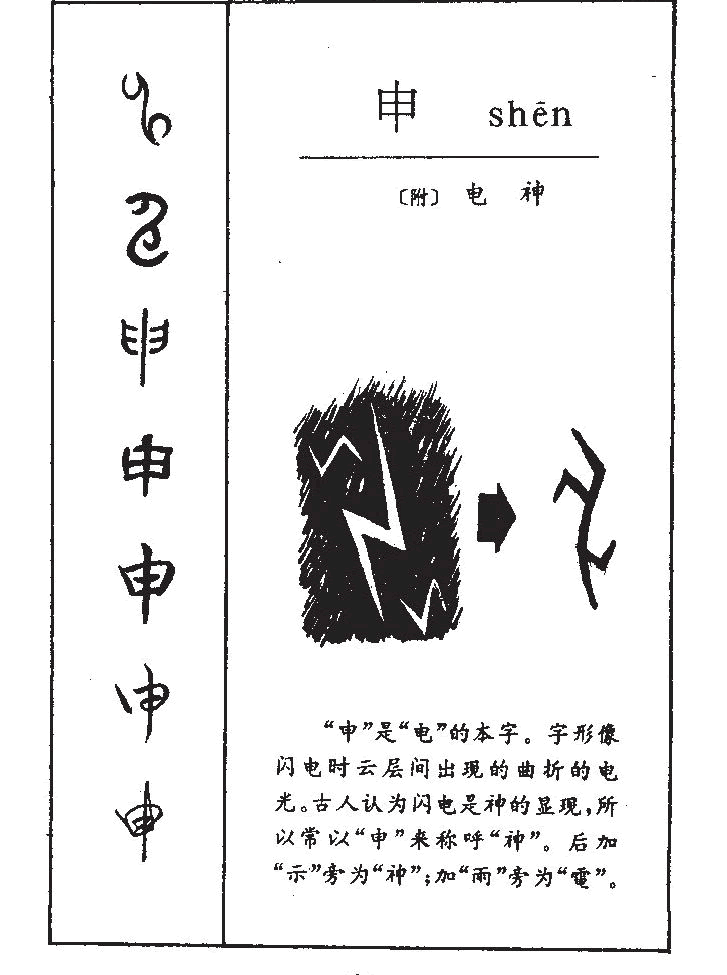 申 shēn
〔附〕 电 神
“申”是“电”的本字。字形像
闪电时云层间出现的曲折的电
光。古人认为闪电是神的显现，所
以常以“申”来称呼“神”。后加
“示”旁为“神”；加“雨”旁为“電”。